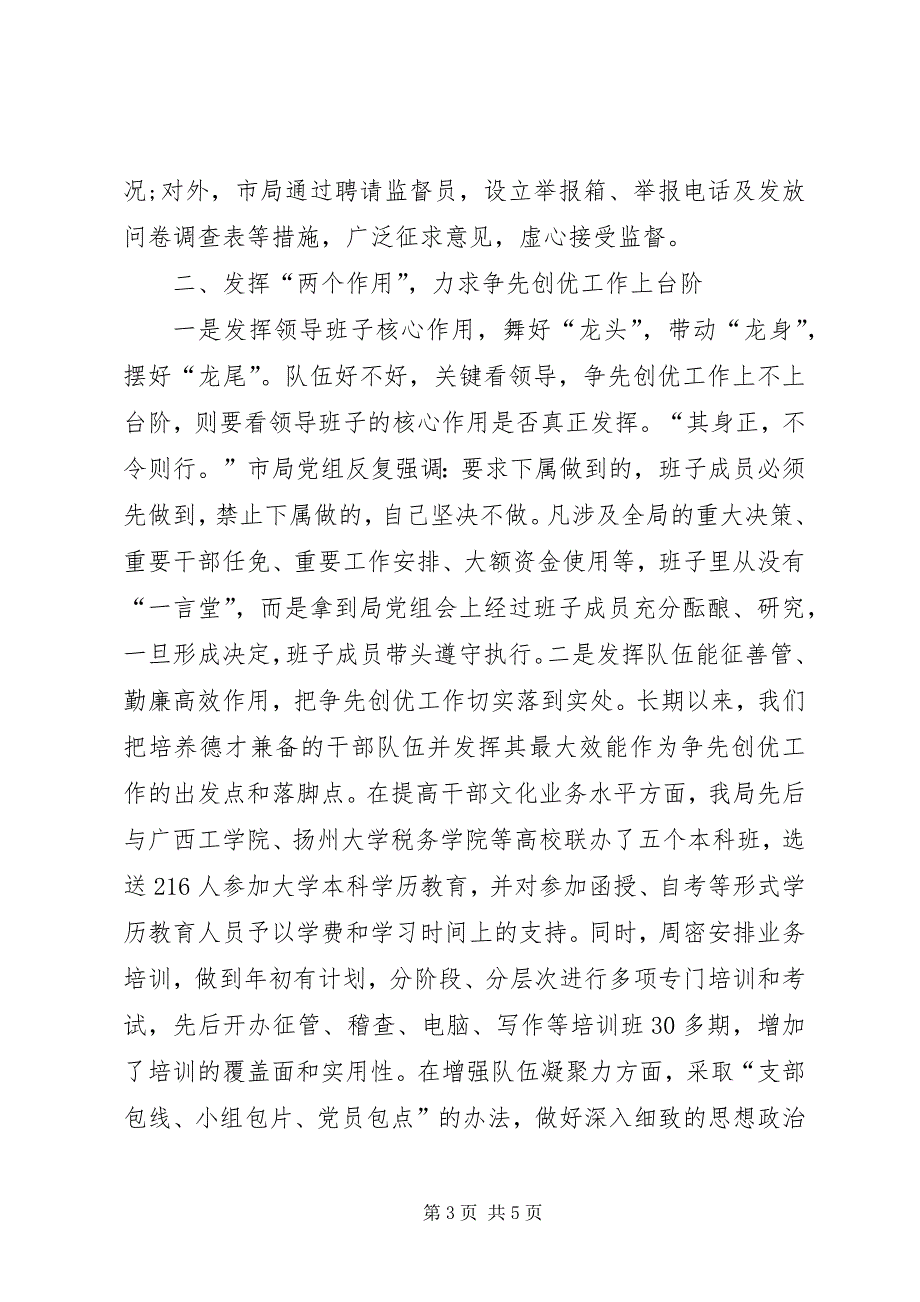 况;对外，市局通过聘请监督员，设立举报箱、举报电话及发放
问卷调查表等措施，广泛征求意见，虚心接受监督。
二、发挥“两个作用”，力求争先创优工作上台阶
一是发挥领导班子核心作用，舞好“龙头”，带动“龙身”，
摆好“龙尾”。队伍好不好，关键看领导，争先创优工作上不上
台阶，则要看领导班子的核心作用是否真正发挥。“其身正，不
令则行。”市局党组反复强调：要求下属做到的，班子成员必须
先做到，禁止下属做的，自己坚决不做。凡涉及全局的重大决策、
重要干部任免、重要工作安排、大额资金使用等，班子里从没有
“一言堂”，而是拿到局党组会上经过班子成员充分酝酿、研究，
一旦形成决定，班子成员带头遵守执行。二是发挥队伍能征善管、
勤廉高效作用，把争先创优工作切实落到实处。长期以来，我们
把培养德才兼备的干部队伍并发挥其最大效能作为争先创优工
作的出发点和落脚点。在提高干部文化业务水平方面，我局先后
与广西工学院、扬州大学税务学院等高校联办了五个本科班，选
送 216 人参加大学本科学历教育，并对参加函授、自考等形式学
历教育人员予以学费和学习时间上的支持。同时，周密安排业务
培训，做到年初有计划，分阶段、分层次进行多项专门培训和考
试，先后开办征管、稽查、电脑、写作等培训班 30 多期，增加
了培训的覆盖面和实用性。在增强队伍凝聚力方面，采取“支部
包线、小组包片、党员包点”的办法，做好深入细致的思想政治
第 3 页 共 5 页